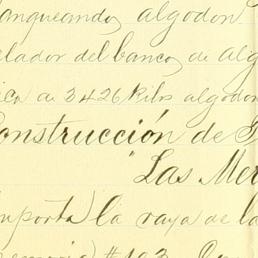 anqueando algodon
elador del banco de alg
ica a 3426 Kilos algodon
Construcción de
"Las Mer
mporta la raya de la